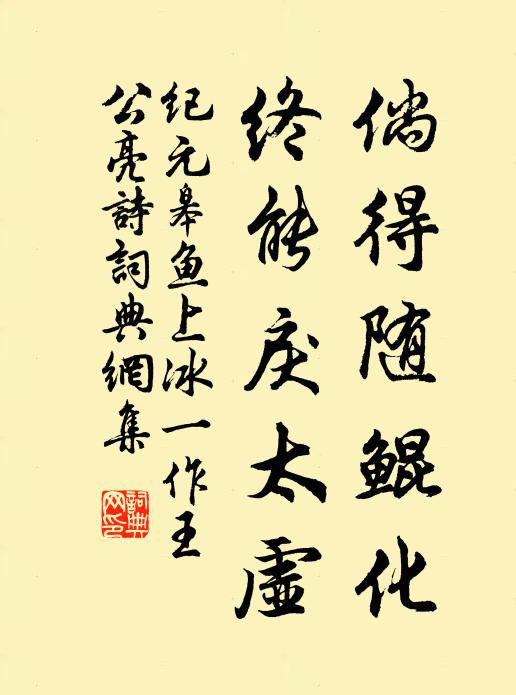 倘得随鲲化
终能戾太虚
纪元皋鱼上冰一作王
公亮詩詞典網集
詞典网印